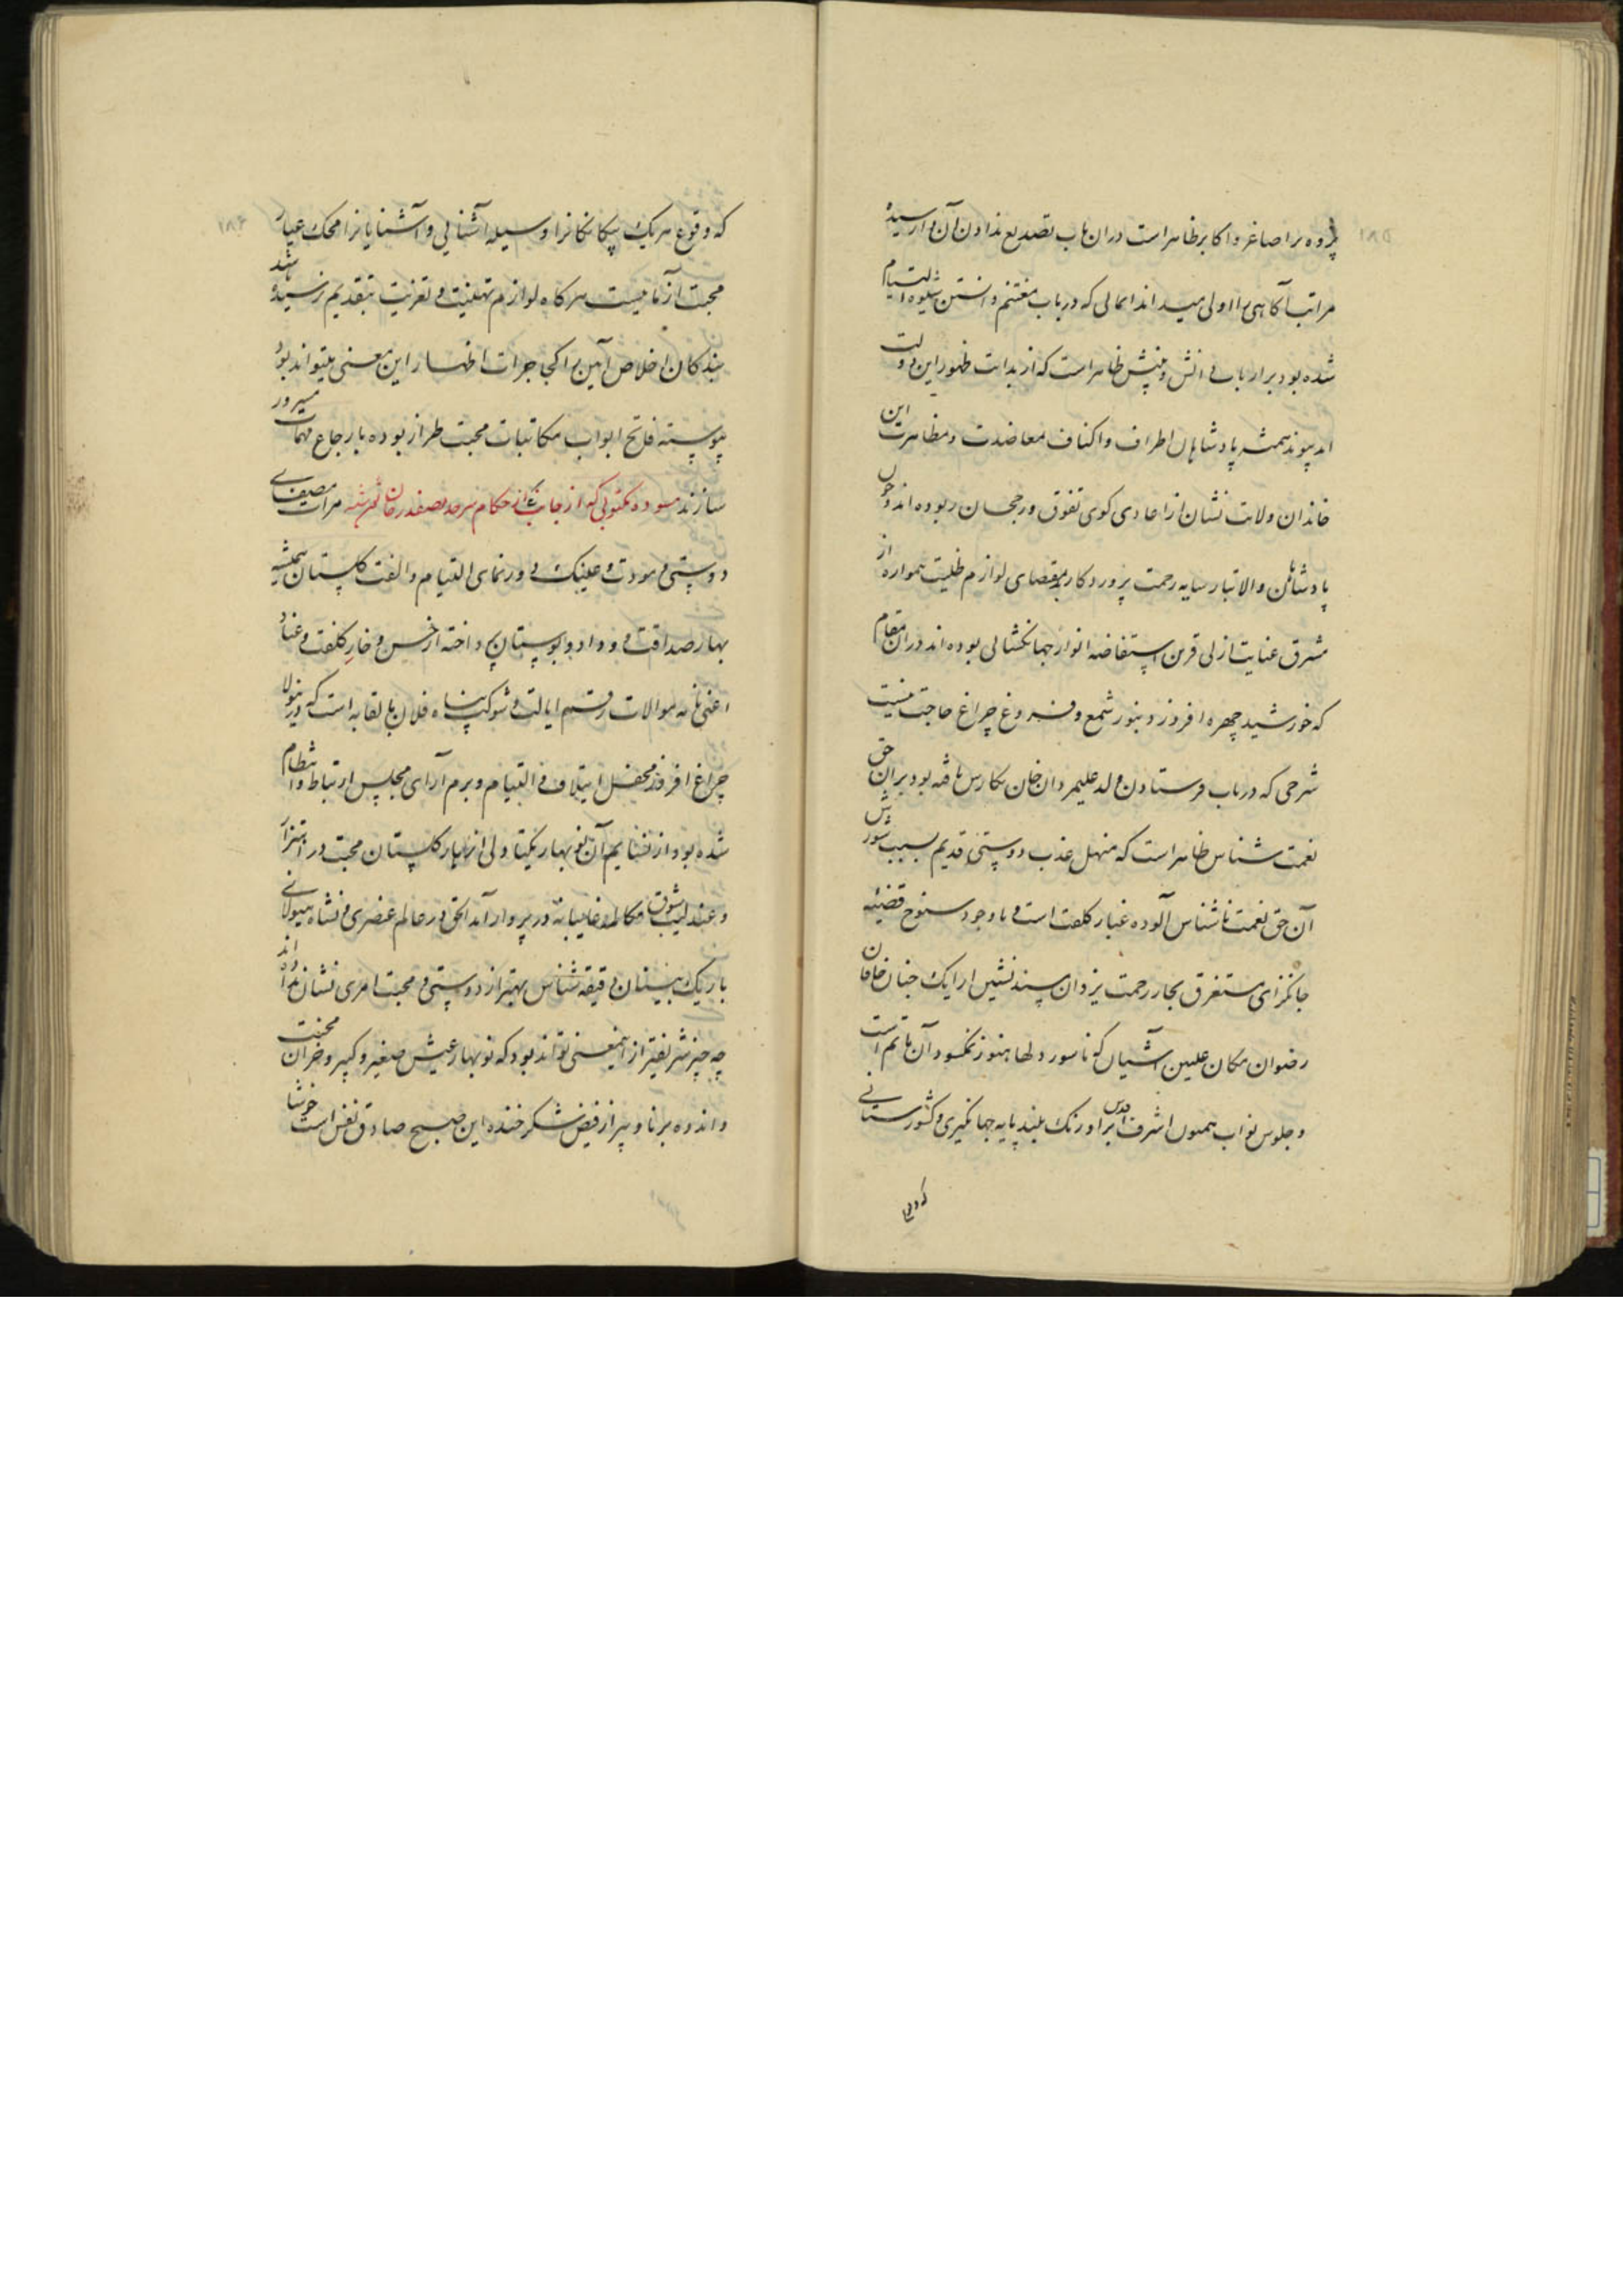 پژوه بر اصاغر و اکابر ظاهر است در ان باب تصدیع ندادن آن وارسیدهٔ
مراتب آکاهی را اولی میداند ایمائی که در باب مغتنم دانستن شیوه التیام
شده بود بر ارباب دانش و بینش ظاهر است که از بدایت ظهور این دولت
ابد پیوند همیشه پادشاهان اطراف و اکناف معاضدت و مظاهرت این
خاندان ولایت نشان از اعادی کوی تفوق و رجحان ربوده اند و چون
پادشاهان والاتبار سایه رحمت پروردکار بمقتضای لوازم ظلیت همواره از
مشرق عنایت ازلی قرین استفاضه انوار جهانکشائی بوده اند در ان مقام
که خورشید چهره افروزد بنور شمع و فروغ چراغ حاجت نیست
شرحی که در باب فرستادن ولد علیمردان خان نکارش یافته بود بر ان حق
نعمت شناس ظاهر است که منهل عذب دوستی قدیم بسبب شورش
آن حق نعمت ناشناس آلوده غبار کلفت است و با وجود سنوح قضیهٔ
جانکزای مستغرق بحار رحمت یزدان مسند نشین ارایک جنان خاقان
رضوان مکان علیین آشیان که ناسور دلها هنوز نمکسود آن ماتم است
و جلوس نواب همیون اشرف اقدس بر اورنک بلند پایه جهانکیری و کشورستانی
که وقوع
۱۸۵
که وقوع هر یک بیکانکانرا وسیله آشنایی و آشنایانرا محک عیار
محبت آزمائیست هر کاه لوازم تهنیت و تعزیت بتقدیم نرسیده باشد
بندکان اخلاص آیین را کجا جرات اظهار این معنی میتواند بود
پیوسته فاتح ابواب مکاتبات محبت طراز بوده بارجاع مهمات مسرور
سازند مسوده مکتوبی که از جانب یکی از حکام سرحد بصفدر خان نوشته مرات مصفای
دوستی و مودت و عینک دورنمای التیام و الفت کلستان همیشه
بهار صداقت و وداد و بوستان پرداخته از خس و خار کلفت و عناد
اعنی نامه موالات رقم ایالت و شوکت پناه فلان بالقابه است که درینولا
چراغ افروز محفل ایتلاف و التیام و بزم آرای مجلس ارتباط و انتظام
شده بود از نسایم آن نوبهار یکتا دلی ازهار کلستان محبت در اهتزاز
و عندلیب شوق مکالمه غایبانه در پرواز آمد الحق در عالم عنصری و نشاه هیولانی
باریک بینان دقیقه شناس بهتر از دوستی و محبت امری نشان نداده اند
چه چیز شریفتر از اینمعنی تواند بود که نوبهار عیش صغیر و کبیر و خزان محنت
و اندوه برنا و پیر از فیض شکر خنده این صبح صادق نفس است خوشا
۱۸۴